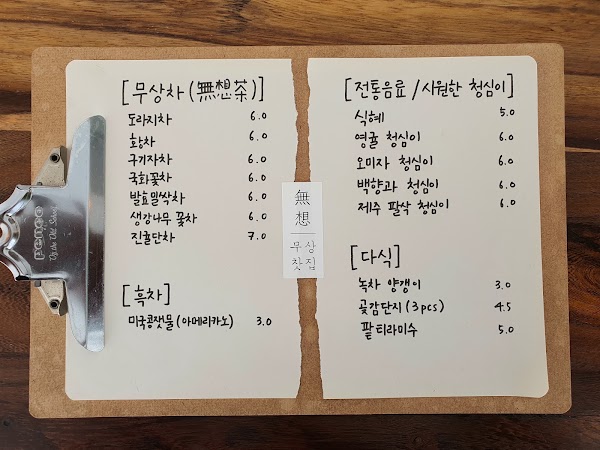 [무상차 (無想茶)]
도라지차 6.0
황차 6.0
구기자차 6.0
국화꽃차 6.0
발효밀싹차 6.0
생강나무 꽃차 6.0
진귤단차 7.0
[흑차]
미국콩잿물 (아메리카노) 3.0
無想
무상찻집
[전통음료 / 시원한 청심이]
식혜 5.0
영귤 청심이 6.0
오미자 청심이 6.0
백향과 청심이 6.0
제주 팔삭 청심이 6.0
[다식]
녹차 양갱이 3.0
곶감단지 (3pcs) 4.5
팥티라미수 5.0
penco